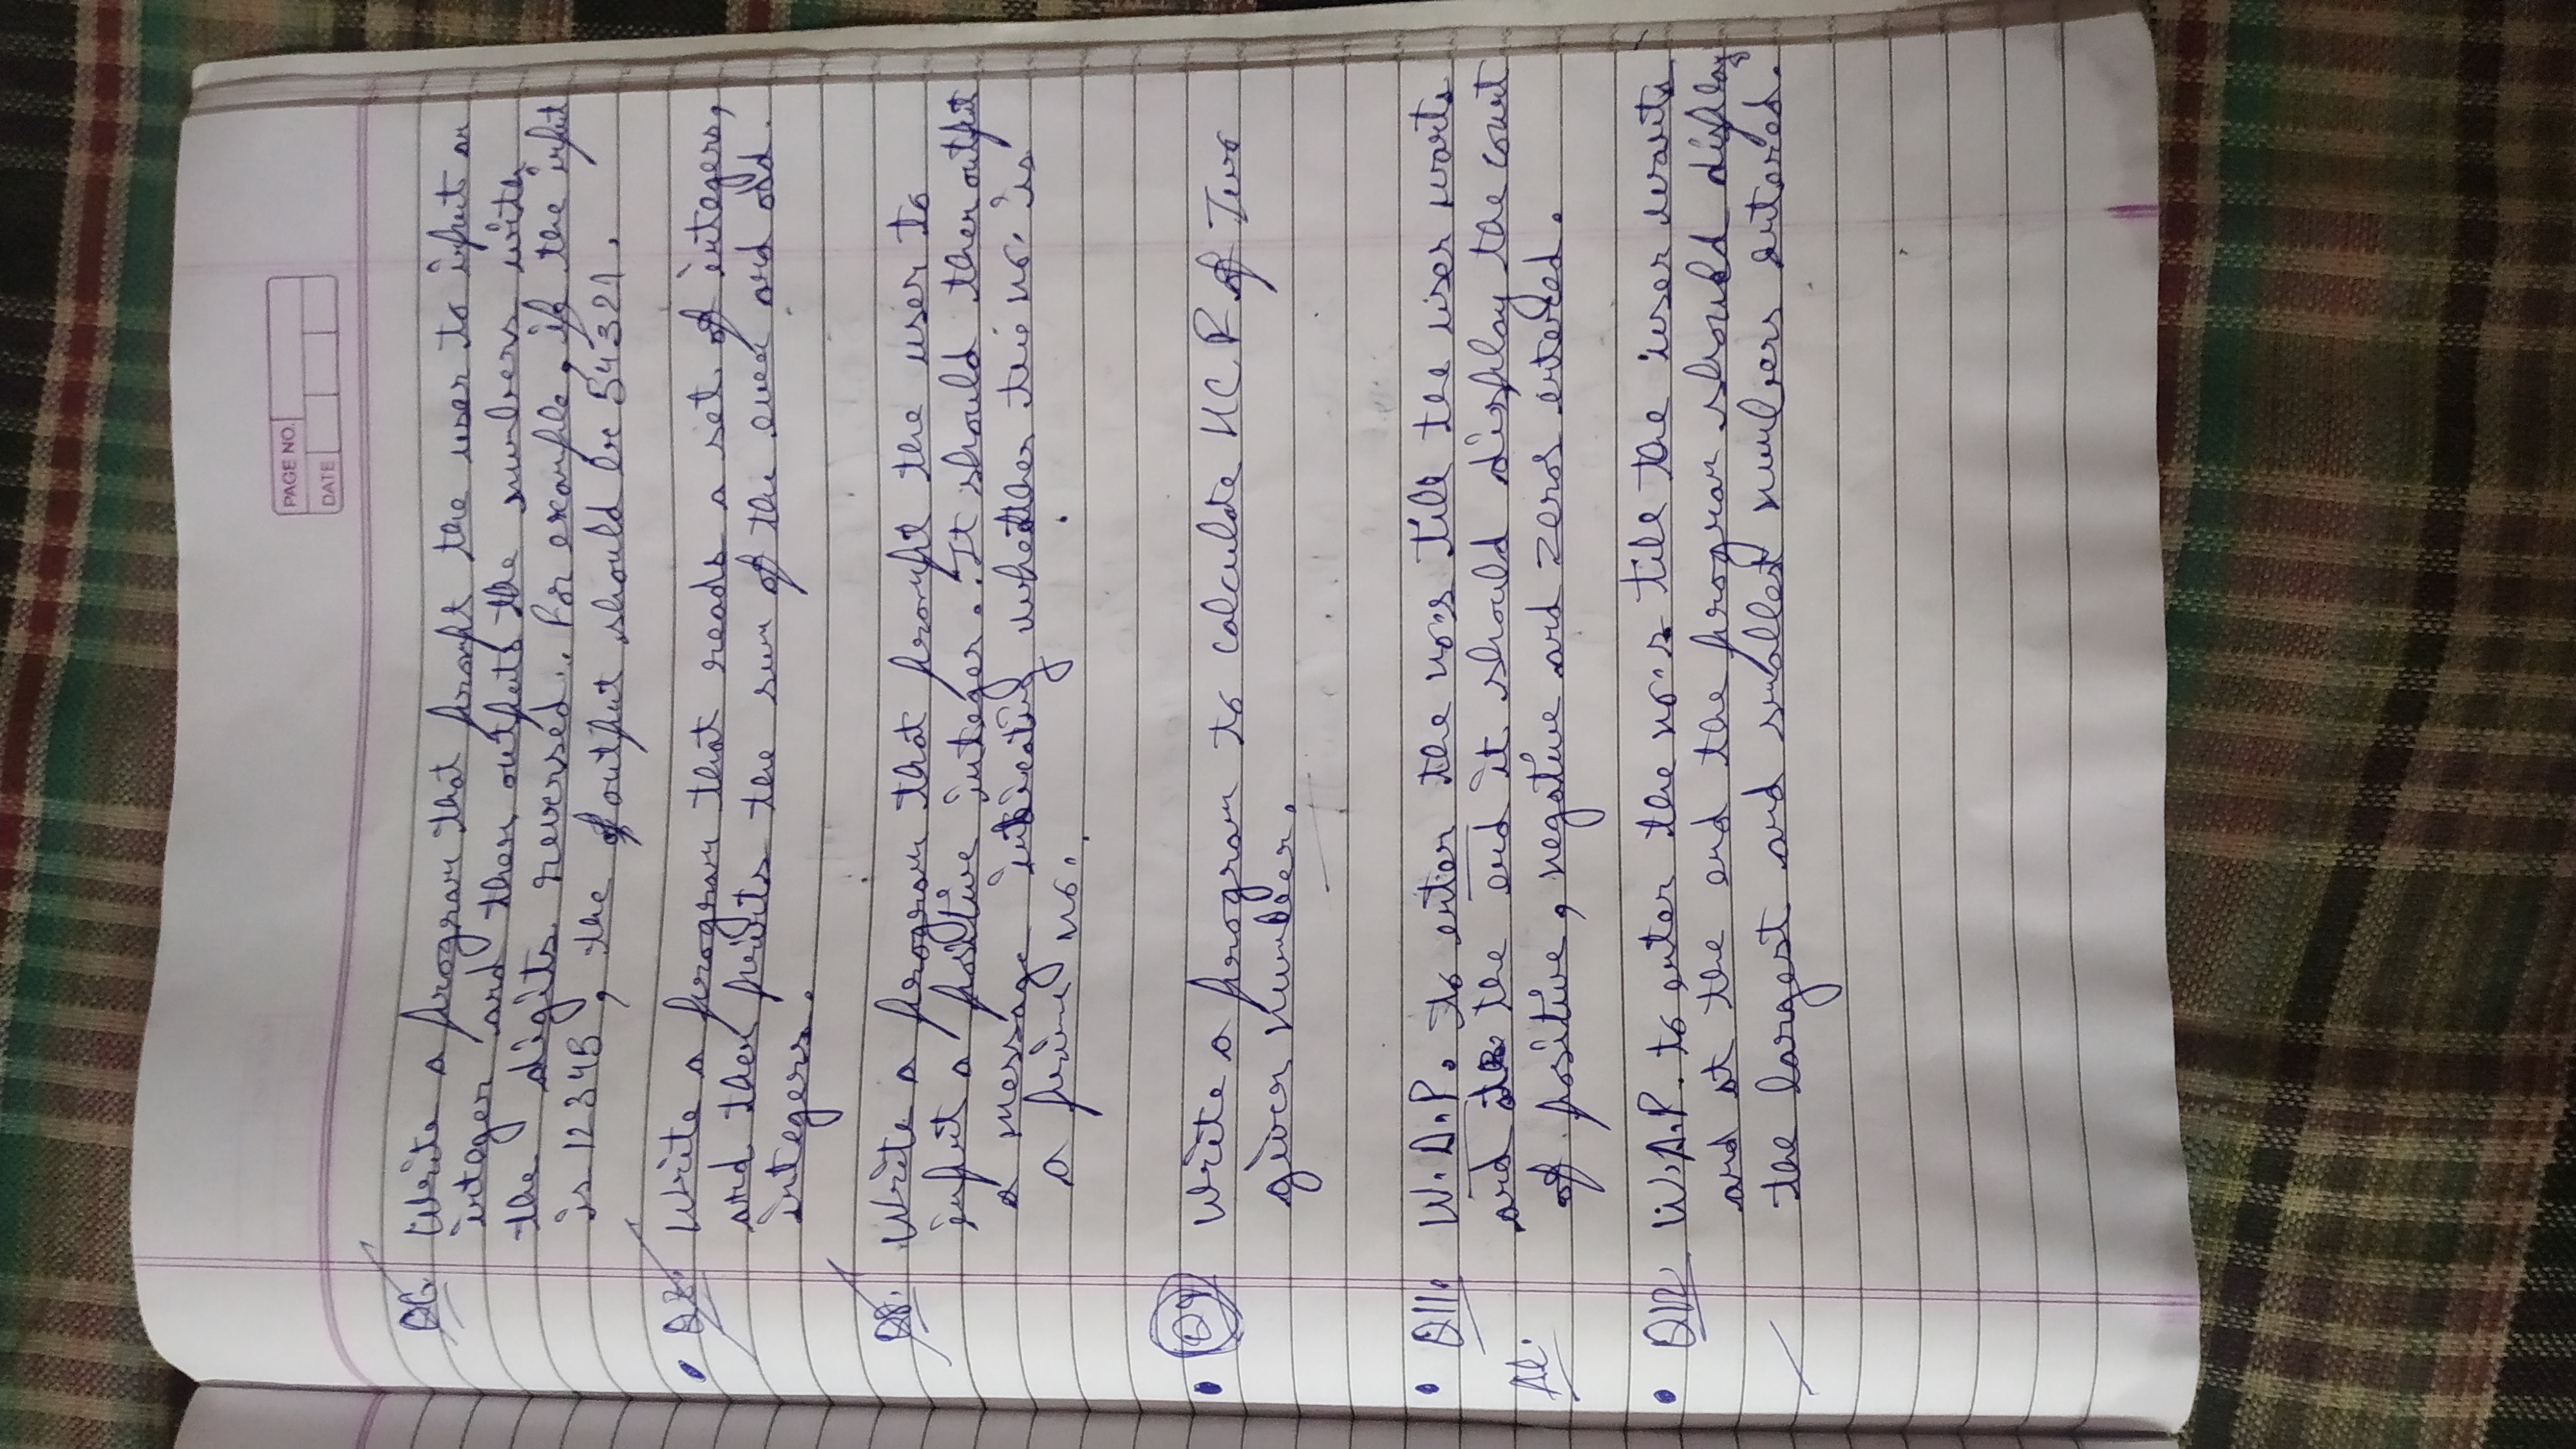 PAGE NO.
DATE
Q6. Write a program that prompt the user to input an
integer and then outputs the numbers with
the digits reversed. For example, if the input
is 12345, the output should be 54321.
Q7. Write a program that reads a set of integers,
and then prints the sum of the even and odd
integers.
Q8. Write a program that prompt the user to
input a positive integer. It should then output
a message indicating whether the no. is
a prime no.
Q9 Write a program to calculate HCF of Two
given number.
Q11. W.A.P. to enter the no's till the user wants
and at the end it should display the count
of positive, negative and zeros entered.
Q12 W.A.P. to enter the no's till the user wants
and at the end the program should display
the largest and smallest numbers entered.